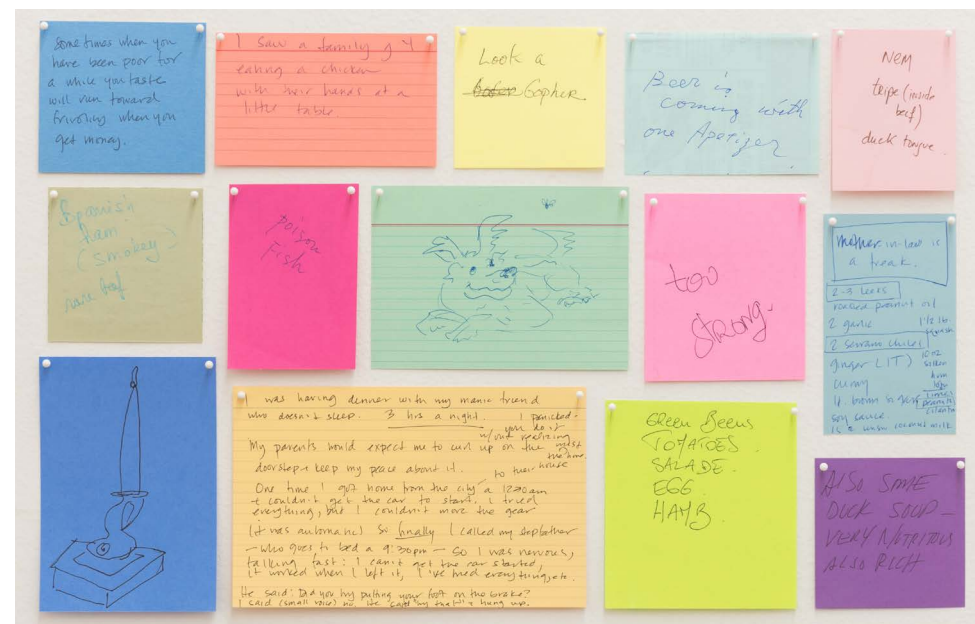 Sometimes when you
have been poor for
a while your taste
will run toward
frivolity when you
get money.
I saw a family of 4
eating a chicken
with their hands at a
little table
Look a
Gopher
Beer is
coming with
one Apetizer
NEM
tripe (inside
beef)
duck tongue
Spanish
ham
(smokey)
poison
Fish
too
strong.
mother-in-law is
a freak.
2-3 leeks
roasted peanut oil
2 garlic
1 1/2 lb
2 serrano chiles
ginger (1T)
curry
4 brown sugar
soy sauce
coconut milk
I was having dinner with my manic friend
who doesn't sleep. 3 hrs a night. I panicked.
you do it
w/out realizing
My parents would expect me to curl up on the
doorstep & keep my peace about it. to their house
One time I got home from the city @ 12:30am
& couldn't get the car to start. I tried
everything, but I couldn't move the gear
(it was automatic) So finally I called my stepfather
– who goes to bed @ 9:30pm – So I was nervous,
talking fast: I can't get the car started,
it worked when I left it, I've tried everything, etc.
He said: Did you try putting your foot on the brake?
I said (small voice) no. He said try that & hung up.
Green Beens
TOMATOES
SALADE.
EGG.
HAM
ALSO SOME
DUCK SOUP –
VERY NUTRITOUS
ALSO RICH